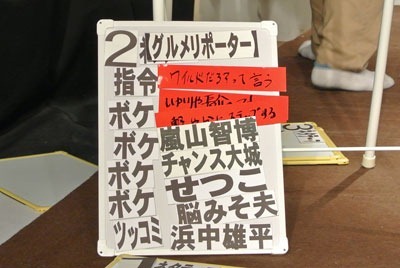 2本【グルメリポーター】
指令 ワイルドだろ?って言う
ボケ 嵐山智博
ボケ チャンス大城
ボケ せつこ
ボケ 脳みそ夫
ツッコミ 浜中雄平